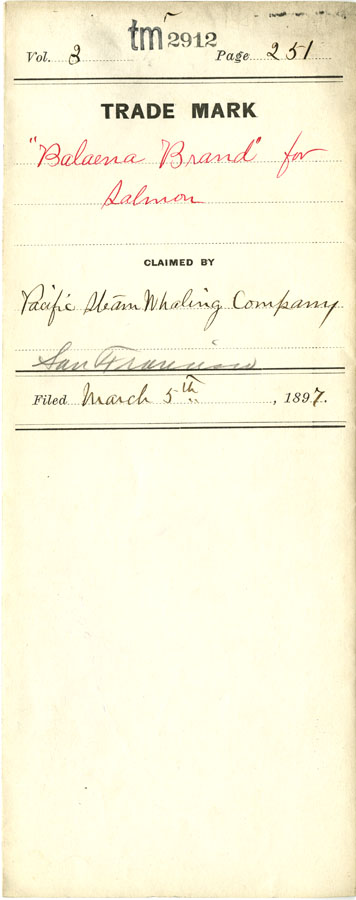 tm 2912
Vol. 3 Page 251
TRADE MARK
"Balaena Brand" for
Salmon
CLAIMED BY
Pacific Steam Whaling Company
San Francisco
Filed March 5th, 1897.